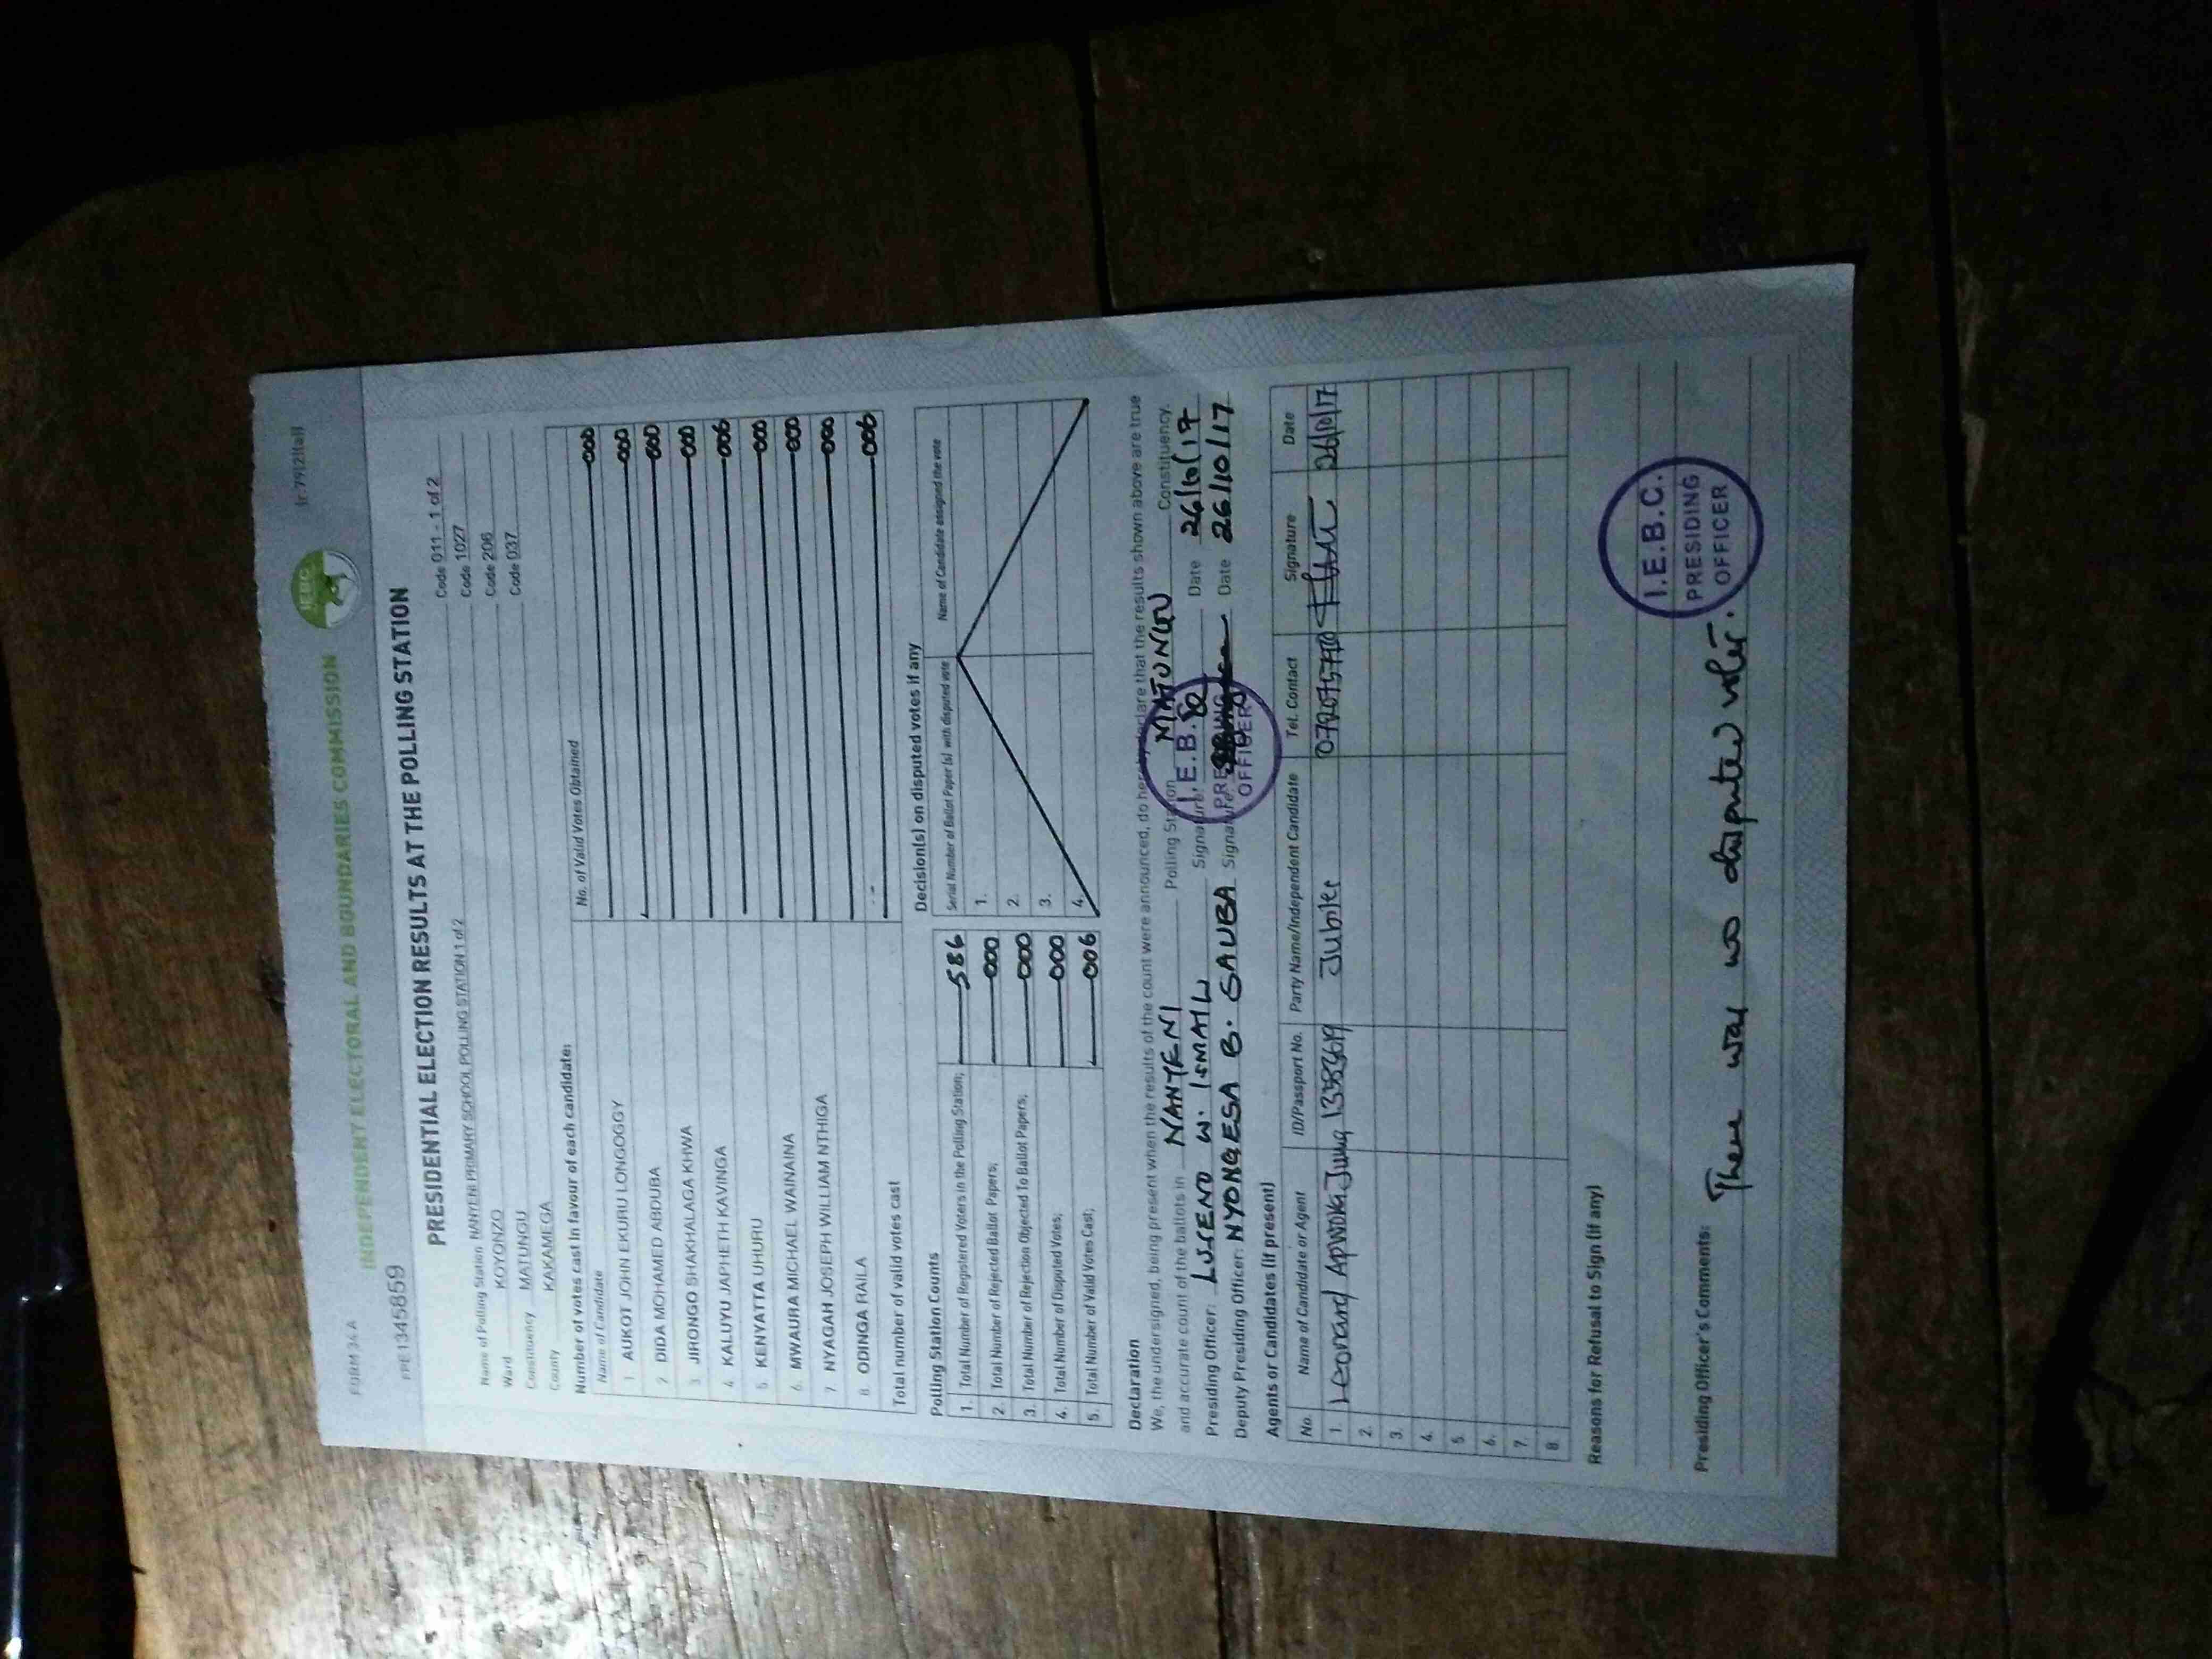 FORM 34 A
INDEPENDENT ELECTORAL AND BOUNDARIES COMMISSION
IEBC
PE13458559
PRESIDENTIAL ELECTION RESULTS AT THE POLLING STATION
Name of Polling Station NANYENI PRIMARY SCHOOL POLLING STATION 1 of 2 Code 011 - 1 of 2
Ward KOYONZO Code 1027
Constituency MATUNGU Code 206
County KAKAMEGA Code 037
Number of votes cast in favour of each candidate:
Name of Candidate No. of Valid Votes Obtained
1 AUKOT JOHN EKURU LONGOGGY 000
2 DIDA MOHAMED ABDUBA 000
3 JIRONGO SHAKHALAGA KHWA 000
4 KALUYU JAPHETH KAVINGA 000
5 KENYATTA UHURU 006
6. MWAURA MICHAEL WAINAINA 000
7. NYAGAH JOSEPH WILLIAM NTHIGA 000
8. ODINGA RAILA 000
Total number of valid votes cast 006
Polling Station Counts
1. Total Number of Registered Voters in the Polling Station; 586
2. Total Number of Rejected Ballot Papers; 000
3. Total Number of Rejection Objected To Ballot Papers; 000
4. Total Number of Disputed Votes; 000
5. Total Number of Valid Votes Cast; 006
Decision(s) on disputed votes if any
Serial Number of Ballot Paper (s) with disputed vote Name of Candidate assigned the vote
1.
2.
3.
4.
Declaration
We, the undersigned, being present when the results of the count were announced, do hereby declare that the results shown above are true
and accurate count of the ballots in NANYENI Polling Station MATUNGU Constituency.
Presiding Officer: W. ISMAIL Signature: Date 26/10/17
Deputy Presiding Officer: NYONGESA B. SAUBA Signature: Date 26/10/17
I.E.B.C.
PRESIDING
OFFICER
Agents or Candidates (if present)
No. Name of Candidate or Agent ID/Passport No. Party Name/Independent Candidate Tel. Contact Signature Date
1. Leonard Apwoka Juma Jubilee 26/10/17
2.
3.
4.
5.
6.
7.
8.
Reasons for Refusal to Sign (if any)
Presiding Officer's Comments: There was no disputed votes.
I.E.B.C.
PRESIDING
OFFICER